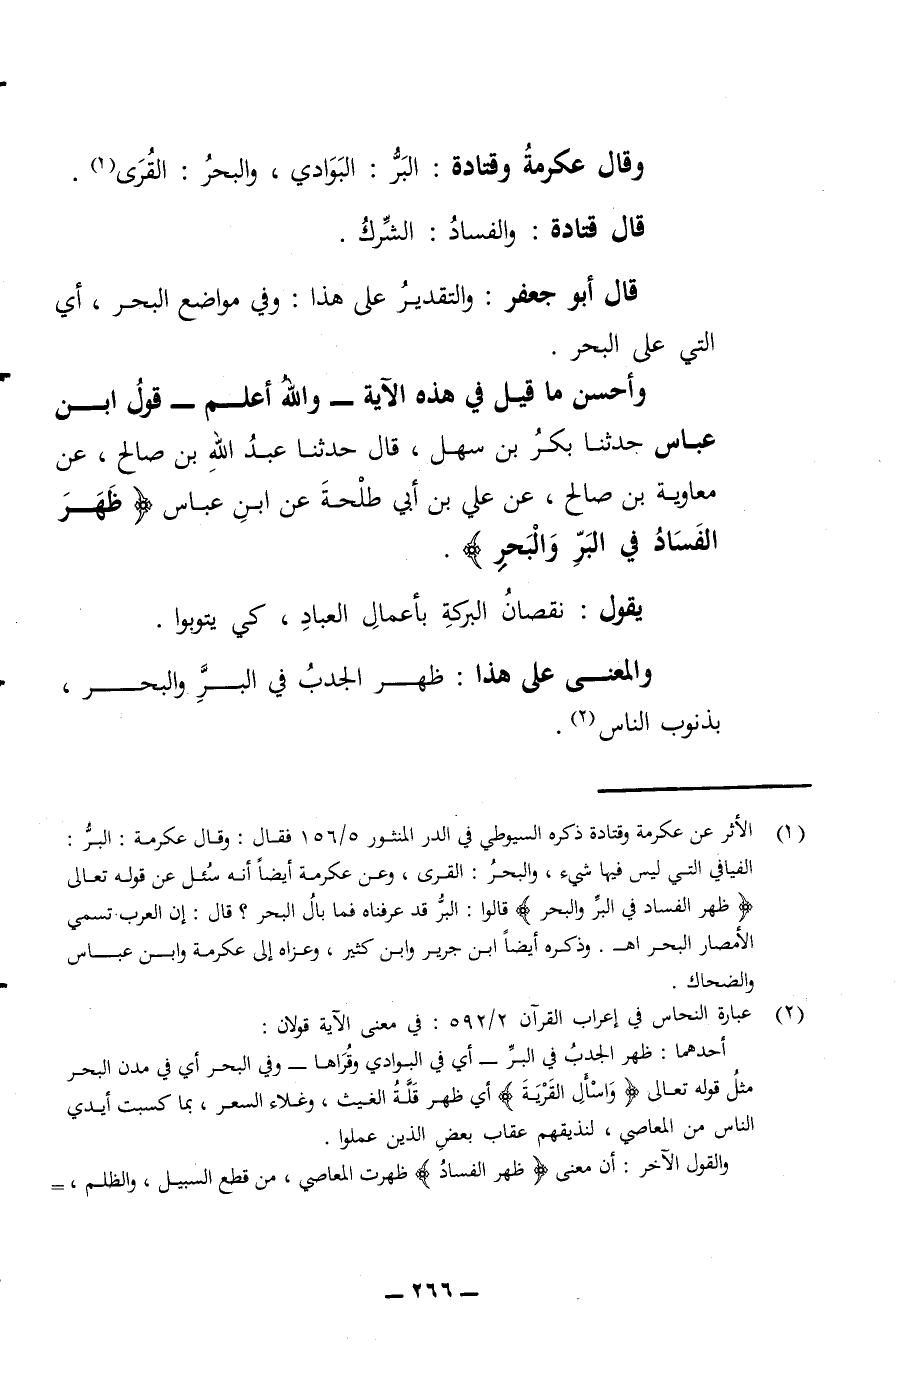 وقال عكرمةُ وقتادة : البَرُّ : البَوَادي ، والبحرُ : القُرَى(١) .
قال قتادة : والفسادُ : الشِّركُ .
قال أبو جعفر : والتقديرُ على هذا : وفي مواضع البحر ، أي
التي على البحر .
وأحسن ما قيل في هذه الآية ــ واللهُ أعلم ــ قولُ ابن
عباس حدثنا بكرُ بن سهل ، قال حدثنا عبدُ اللهِ بن صالح ، عن
معاوية بن صالح ، عن علي بن أبي طلْحةَ عن ابنِ عباس ﴿ ظَهَرَ
الفَسَادُ في البَرِّ وَالْبَحرِ ﴾ .
يقول : نقصانُ البركةِ بأعمالِ العبادِ ، كي يتوبوا .
والمعنى على هذا : ظهر الجدبُ في البرَِّ والبحر ،
بذنوب الناس(٢) .
(١) الأثر عن عكرمة وقتادة ذكره السيوطي في الدر المنثور ١٥٦/٥ فقال : وقال عكرمة : البرُّ :
الفيافي التي ليس فيها شيء ، والبحرُ : القرى ، وعن عكرمة أيضاً أنه سُئل عن قوله تعالى
﴿ ظهر الفساد في البرِّ والبحر ﴾ قالوا : البرُّ قد عرفناه فما بالُ البحر ؟ قال : إن العرب تسمي
الأمصار البحر اهـ . وذكره أيضاً ابن جرير وابن كثير ، وعزاه إلى عكرمة وابن عباس
والضحاك .
(٢) عبارة النحاس في إعراب القرآن ٥٩٢/٢ : في معنى الآية قولان :
أحدهما : ظهر الجدبُ في البرِّ ــ أي في البوادي وقُرَاها ــ وفي البحر أي في مدن البحر
مثلُ قوله تعالى ﴿ وَاسْأَلِ القَرْيَةَ ﴾ أي ظهر قلَّةُ الغيث ، وغلاء السعر ، بما كسبت أيدي
الناس من المعاصي ، لنذيقهم عقاب بعضِ الذين عملوا .
والقول الآخر : أن معنى ﴿ ظهر الفسادُ ﴾ ظهرت المعاصي ، من قطع السبيل ، والظلم ، =
ــ ٢٦٦ ــ